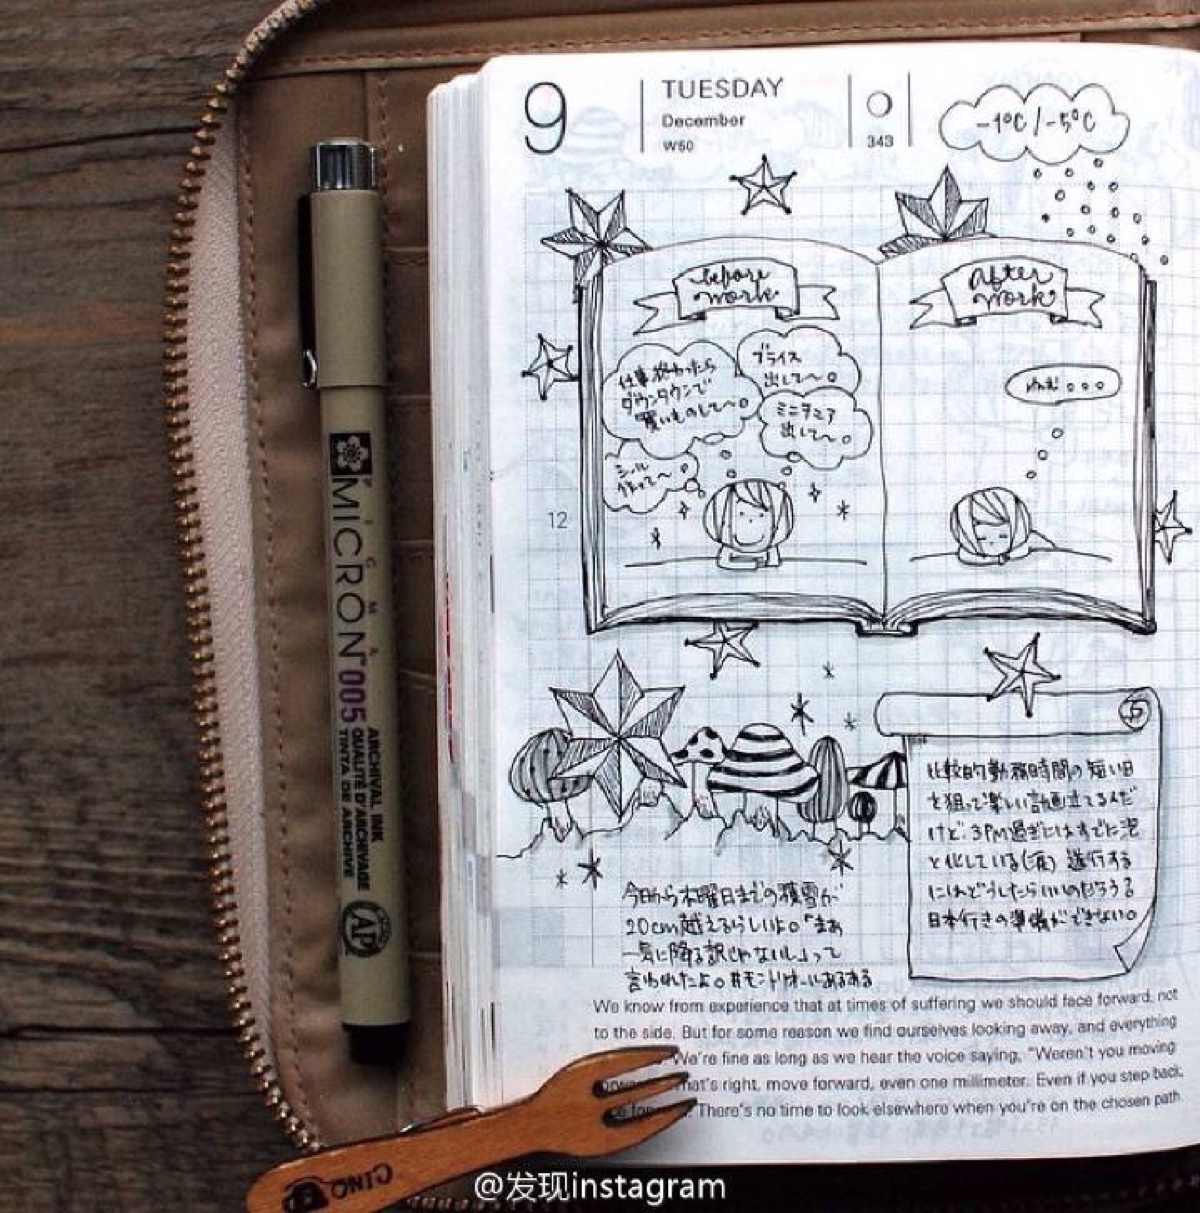 9
TUESDAY
December
W50
343
-1°C/-5°C
before
work
After
work
仕事終わったら
ダウンタウンで
買いものして〜。
ブライス
出して〜。
ミニチュア
出して〜。
シール
作って〜。
ねむ。。。
12
MICRON 005
PIGMA
ARCHIVAL INK
QUALITÉ D'ARCHIVAGE
TINTA DE ARCHIVE
AP
比較的勤務時間の短い日
を狙って楽しい計画立てるんだ
けど、3PM過ぎにはすでに泡
と化している(涙) 遂行する
にはどうしたらいいのだろうる
日本行きの準備ができない。
今日から木曜日までの積雪が
20cm越えるらしいよ。「まぁ
一気に降る訳じゃないし」って
言われたよ。#モントリオールあるある
We know from experience that at times of suffering we should face forward, not
to the side. But for some reason we find ourselves looking away, and everything
We're fine as long as we hear the voice saying, "Weren't you moving
That's right, move forward, even one millimeter. Even if you step back,
There's no time to look elsewhere when you're on the chosen path.
CINQ
@发现instagram